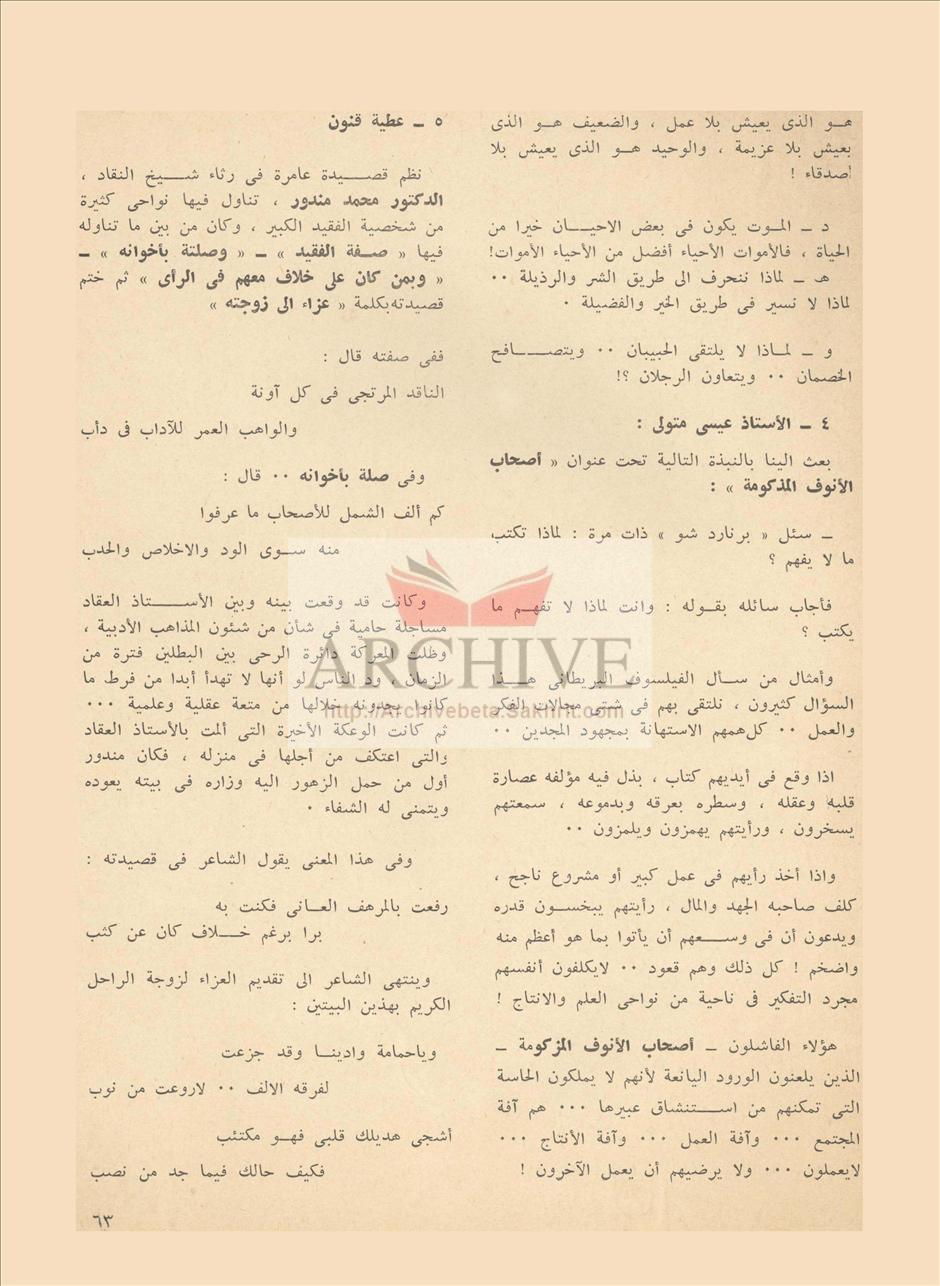 هـو الذى يعيش بلا عمل ، والضعيف هـو الذى
يعيش بلا عزيمة ، والوحيد هـو الذى يعيش بلا
أصدقاء !
د ـ المـوت يكون فى بعض الاحيـان خيرا من
الحياة ، فالأموات الأحياء أفضل من الأحياء الأموات!
هـ ـ لماذا ننحرف الى طريق الشر والرذيلة ٠٠
لماذا لا نسير فى طريق الخير والفضيلة ٠
و ـ لمـاذا لا يلتقى الحبيبان ٠٠ ويتصـافح
الخصمان ٠٠ ويتعاون الرجلان ؟!
٤ ـ الأستاذ عيسى متولى :
بعث الينا بالنبذة التالية تحت عنوان « أصحاب
الأنوف المذكومة » :
ـ سئل « برنارد شو » ذات مرة : لماذا تكتب
ما لا يفهم ؟
فأجاب سائله بقـوله : وانت لماذا لا تفهـم ما
يكتب ؟
وأمثال من سـأل الفيلسوف البريطانى هـذا
السؤال كثيرون ، نلتقى بهم فى شتى مجالات الفكر
والعمل ٠٠ كل همهم الاستهانة بمجهود المجدين ٠٠
اذا وقع فى أيديهم كتاب ، بذل فيه مؤلفه عصارة
قلبه وعقله ، وسطره بعرقه وبدموعه ، سمعتهم
يسخرون ، ورأيتهم يهمزون ويلمزون ٠٠
واذا أخذ رأيهم فى عمل كبير أو مشروع ناجح ،
كلف صاحبه الجهد والمال ، رأيتهم يبخسـون قدره
ويدعون أن فى وسـعهم أن يأتوا بما هو أعظم منه
واضخم ! كل ذلك وهم قعود ٠٠ لايكلفون أنفسهم
مجرد التفكير فى ناحية من نواحى العلم والانتاج !
هؤلاء الفاشلون ـ أصحاب الأنوف المزكومة ـ
الذين يلعنون الورود اليانعة لأنهم لا يملكون الحاسة
التى تمكنهم من اسـتنشاق عبيرها ٠٠٠ هم آفة
المجتمع ٠٠٠ وآفة العمل ٠٠٠ وآفة الأنتاج ٠٠٠
لايعملون ٠٠٠ ولا يرضيهم أن يعمل الآخرون !
٥ ـ عطية قنون
نظم قصـيدة عامرة فى رثاء شـيخ النقاد ،
الدكتور محمد مندور ، تناول فيها نواحى كثيرة
من شخصية الفقيد الكبير ، وكان من بين ما تناوله
فيها « صـفة الفقيد » ـ « وصلتة بأخوانه » ـ
« وبمن كان على خلاف معهم فى الرأى » ثم ختم
قصيدته بكلمة « عزاء الى زوجته »
ففى صفته قال :
الناقد المرتجى فى كل آونة
والواهب العمر للآداب فى دأب
وفى صلة بأخوانه ٠٠ قال :
كم ألف الشمل للأصحاب ما عرفوا
منه سـوى الود والاخلاص والحدب
وكانت قد وقعت بينه وبين الأسـتاذ العقاد
مساجلة حامية فى شأن من شئون المذاهب الأدبية ،
وظلت المعركة دائرة الرحى بين البطلين فترة من
الزمان ، ود الناس لو أنها لا تهدأ أبدا من فرط ما
كانوا يجدونه خلالها من متعة عقلية وعلمية ٠٠٠
ثم كانت الوعكة الأخيرة التى ألمت بالأستاذ العقاد
والتى اعتكف من أجلها فى منزله ، فكان مندور
أول من حمل الزهور اليه وزاره فى بيته يعوده
ويتمنى له الشفاء ٠
وفى هذا المعنى يقول الشاعر فى قصيدته :
رفعت بالمرهف العـانى فكنت به
برا برغم خـلاف كان عن كثب
وينتهى الشاعر الى تقديم العزاء لزوجة الراحل
الكريم بهذين البيتين :
وياحمامة وادينـا وقد جزعت
لفرقه الالف ٠٠ لاروعت من نوب
أشجى هديلك قلبى فهـو مكتئب
فكيف حالك فيما جد من نصب
٦٣
ARCHIVE
http://Archivebeta.Sakhrit.com